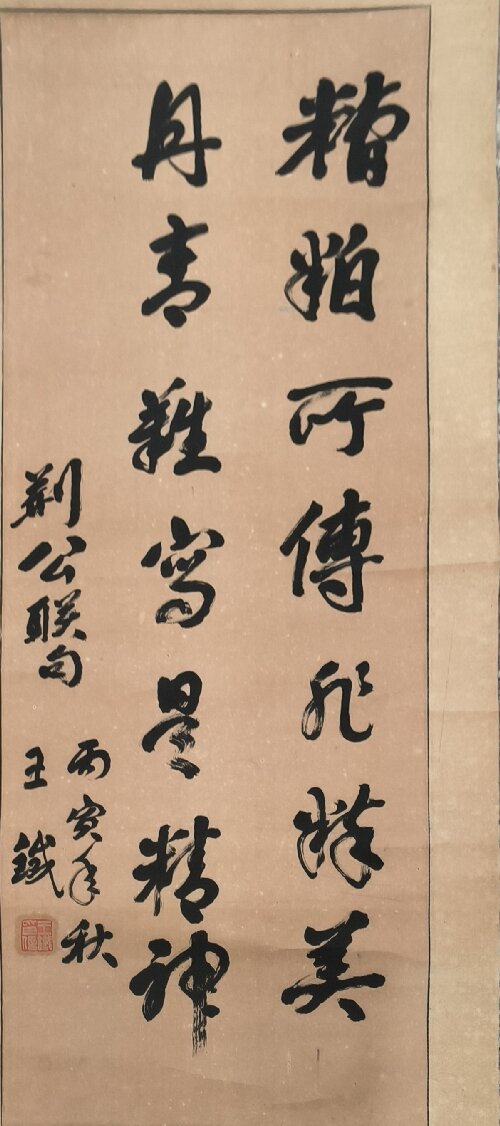 糟粕所傳非粹美
丹青難寫是精神
荆公联句
丙寅年秋
王鐵